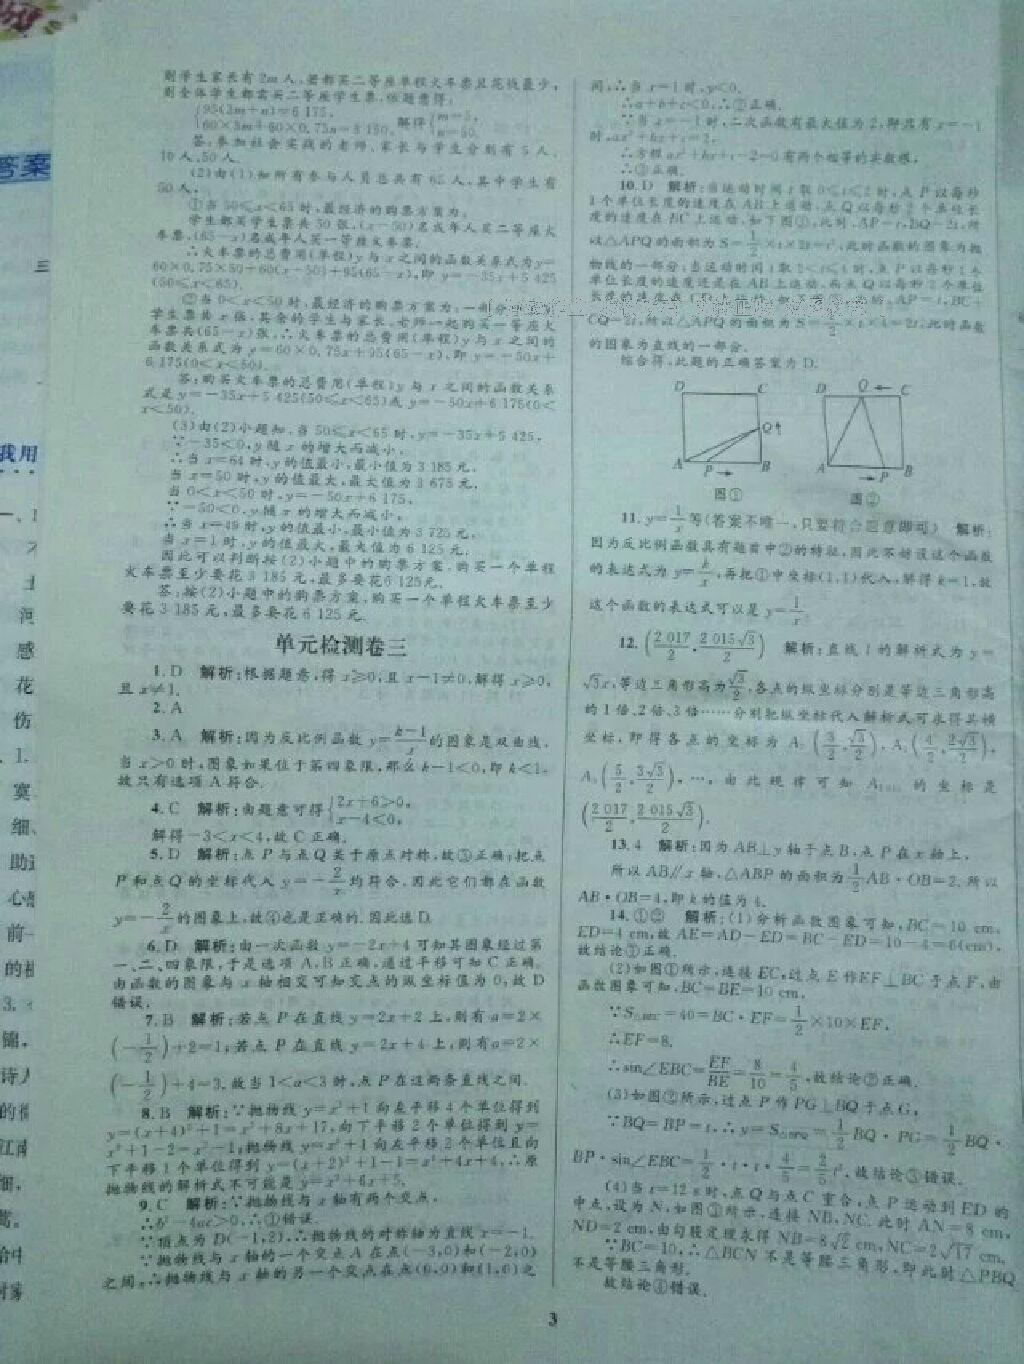 则学生家长有2m人,若都买二等座单程火车票且花钱最少,
则全体学生都需买二等座学生票,依题意得:
{95(3m+n)=6 175,
60×3m+60×0.75n=3 150. 解得{m=5,
n=50.
答:参加社会实践的老师、家长与学生分别有5人、
10人、50人.
(2)由(1)知所有参与人员总共有65人,其中学生有
50人.
①当50≤x<65时,最经济的购票方案为:
学生都买学生票共50张,(x-50)名成年人买二等座火
车票,(65-x)名成年人买一等座火车票.
∴火车票的总费用(单程)y与x之间的函数关系式为y=
60×0.75×50+60(x-50)+95(65-x),即y=-35x+5 425
(50≤x<65).
②当0<x<50时,最经济的购票方案为:一部分
学生票共x张,其余的学生与家长、老师一起购买一等座火
车票共(65-x)张,∴火车票的总费用(单程)y与x之间的
函数关系式为y=60×0.75x+95(65-x),即y=-50x+
6 175(0<x<50).
答:购买火车票的总费用(单程)y与x之间的函数关系
式是y=-35x+5 425(50≤x<65)或y=-50x+6 175(0<
x<50).
(3)由(2)小题知,当50≤x<65时,y=-35x+5 425,
∵-35<0,y随x的增大而减小,
∴当x=64时,y的值最小,最小值为3 185元,
当x=50时,y的值最大,最大值为3 675元.
当0<x<50时,y=-50x+6 175,
∵-50<0,y随x的增大而减小,
∴当x=49时,y的值最小,最小值为3 725元,
当x=1时,y的值最大,最大值为6 125元.
因此可以判断按(2)小题中的购票方案,购买一个单程
火车票至少要花3 185元,最多要花6 125元.
答:按(2)小题中的购票方案,购买一个单程火车票至少
要花3 185元,最多要花6 125元.
单元检测卷三
1. D 解析:根据题意,得x≥0,且x-1≠0,解得x≥0,
且x≠1.
2. A
3. A 解析:因为反比例函数y=(k-1)/x的图象是双曲线,
当x>0时,图象如果位于第四象限,那么k-1<0,即k<1,
故只有选项A符合.
4. C 解析:由题意可得{2x+6>0,
x-4<0,
解得-3<x<4,故C正确.
5. D 解析:点P与点Q关于原点对称,故③正确;把点
P和点Q的坐标代入y=-2/x均符合,因此它们都在函数
y=-2/x的图象上,故④也是正确的.因此选D.
6. D 解析:由一次函数y=-2x+4可知其图象经过第
一、二、四象限,于是选项A,B正确,通过平移可知C正确.
由函数的图象与x轴相交可知交点的纵坐标值为0,故D
错误.
7. B 解析:若点P在直线y=2x+2上,则有a=2×
(-1/2)+2=1;若点P在直线y=2x+4上,则有a=2×
(-1/2)+4=3.故当1<a<3时,点P在这两条直线之间.
8. B 解析:∵抛物线y=x²+1向左平移4个单位得到
y=(x+4)²+1=x²+8x+17,向下平移2个单位得到y=
x²+1-2=x²-1;抛物线y=x²+1向左平移2个单位且向
下平移1个单位得到y=(x+2)²+1-1=x²+4x+4,∴原
抛物线的解析式不可能是y=x²+6x+5.
9. C 解析:∵抛物线与x轴有两个交点,
∴b²-4ac>0,∴①错误.
∵顶点为D(-1,2),∴抛物线的对称轴为直线x=-1.
∵抛物线与x轴的一个交点A在点(-3,0)和(-2,0)
之间,∴抛物线与x轴的另一个交点在点(0,0)和(1,0)之
间,∴当x=1时,y<0.
∴a+b+c<0,∴②正确.
∵当x=-1时,二次函数有最大值为2,即只有x=-1
时,ax²+bx+c=2,
∴方程ax²+bx+c-2=0有两个相等的实数根,
10. D 解析:当运动时间t取0≤t≤2时,点P以每秒
1个单位长度的速度在AB上运动,点Q以每秒2个单位长
度的速度在BC上运动,如下图①,此时,AP=t,BQ=2t,所
以△APQ的面积为S=1/2×t×2t=t²,此时函数的图象为抛
物线的一部分;当运动时间t取2<t≤4时,点P以每秒1个
单位长度的速度还是在AB上运动,而点Q以每秒2个单位
CQ=2t,所以△APQ的面积为S=1/2×t×4=2t,此时函数
的图象为直线的一部分.
综合得,此题的正确答案为D.
D C D Q ← C
Q↑
A P → B A → P B
图① 图②
11. y=1/x等(答案不唯一,只要符合题意即可) 解析:
因为反比例函数具有题目中②的特征,因此不妨设这个函数
的表达式为y=k/x,再把①中坐标(1,1)代入,解得k=1,故
这个函数的表达式可以是y=1/x.
12. (2 017/2, 2 015√3/2) 解析:直线l的解析式为y=
√3x,等边三角形高为√3/2,各点的纵坐标分别是等边三角形高
的1倍、2倍、3倍……分别把纵坐标代入解析式可求得其横
坐标,即得各点的坐标为A₁(3/2, √3/2),A₂(4/2, 2√3/2),
A₃(5/2, 3√3/2),…,由此规律可知 的坐标是
(2 017/2, 2 015√3/2).
13. 4 解析:因为AB⊥y轴于点B,点P在x轴上,
所以AB∥x轴,△ABP的面积为1/2AB·OB=2.所以
AB·OB=4,即k的值为4.
14. ①② 解析:(1)分析函数图象可知,BC=10 cm,
ED=4 cm,故AE=AD-ED=BC-ED=10-4=6(cm),
故结论①正确.
(2)如图①所示,连接EC,过点E作EF⊥BC于点F,由
函数图象可知,BC=BE=10 cm,
∵S△BEC=40=BC·EF=1/2×10×EF,
∴EF=8,
∴sin∠EBC=EF/BE=8/10=4/5,故结论②正确.
(3)如图②所示,过点P作PG⊥BQ于点G,
∵BQ=BP=t,∴y=S△BPQ=1/2BQ·PG=1/2BQ·
BP·sin∠EBC=1/2·t·t·4/5=2/5t²,故结论③错误.
(4)当t=12 s时,点Q与点C重合,点P运动到ED的
中点,设为N,如图③所示,连接NB,NC.此时AN=8 cm,
ND=2 cm,由勾股定理求得NB=8√2 cm,NC=2√17 cm,
∵BC=10,∴△BCN不是等腰三角形,即此时△PBQ
不是等腰三角形.
故结论④错误.
3
答案
三
我用
河
感
花
伤
1.
寞
细、
助
前
的
江南